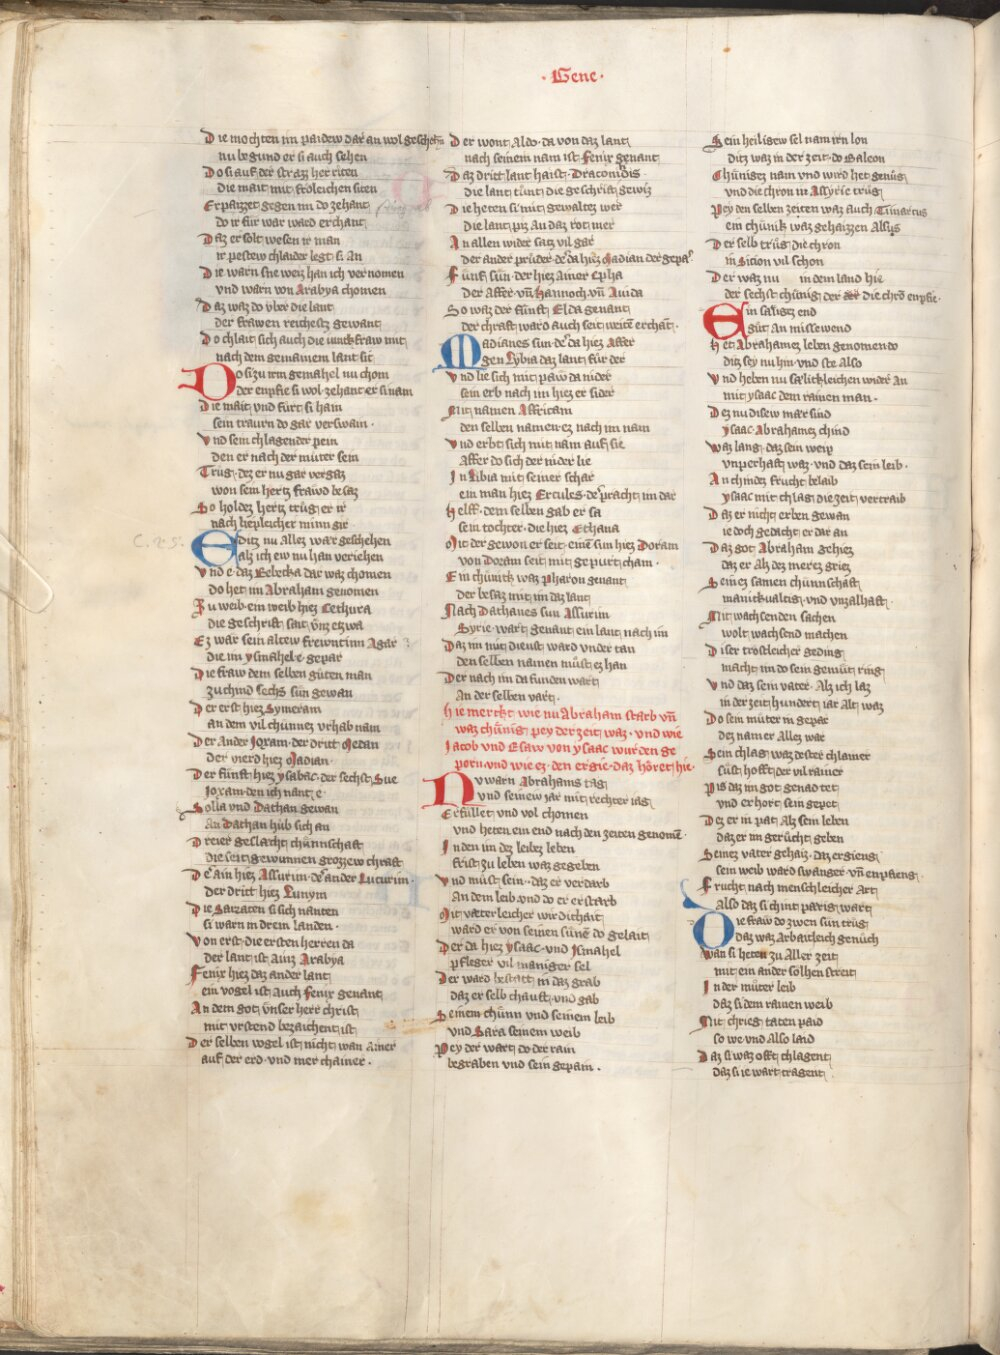 · Gene ·
Die mochten im paidew dar an wol geschehn
nu begund er si auch sehen
Do si auf der strazz her riten
die mait mit fröleichen siten
Erpaizzet gegen im do zehant
do ir für war ward erchant
Daz er solt wesen ir man
ir pestew chlaider legt si An
Die warn sne weiz han ich vernomen
vnd warn von Arabya chomen
Daz waz do vber die lant
der frawen reichest gewant
Do chlait sich auch die iunkfraw mit
nach dem gemainem lant sit
Do si zu irm gemahel nu chom
der enpfie si wol zehant er si nam
Die mait vnd fürt si haim
sein trawrn do gar verswain ·
Vnd sein chlagender pein
den er nach der müter sein
Trüg · dez er nu gar vergaz
won sein hertz frawd besaz
So holdez hertz trüg er ir
nach liepleicher minn gir
C. 25.
Editz nu Allez war geschehen
alz ich ew nu han veriehen
Vnd e · daz Rebecka dar waz chomen
do het im Abraham genomen
Zu weib · ein weib hiez Cethura
die geschrift sait vns etzwa
Ez wär sein altew frewntinn Agar
die im ysmahele · gepar
Die fraw dem selben güten man
zu chind sechs sün gewan
Der erst hiez Symeram
an dem vil chunnez vrhab nam
Der Ander Joxam · der dritt Medan
der vierd hiez Madian ·
Der fünft hiez ysabac · der sechst Sue
Joxam · den ich nant e ·
Solla vnd Dathan gewan
An Dathan hüb sich an
Dreier geslacht chünnschaft
die seit gewunnen grozzew chraft
Der Ain hiez Assurim · der ander Lucurim ·
der dritt hiez Lunym
Die Sarzaten si sich nanten
si warn in drein landen ·
Von erst · die ersten herren da
der lant ist Ainz Arabya
Fenix hiez daz ander lant
ein vogel ist Auch Fenix genant
An dem got vnser herr christ
mit vrstend bezaichent ist
Der selben vogel ist nicht wan Ainer
auf der erd · vnd mer chainer ·
Der wont Aldo · da von daz lant
nach seinem nam ist Fenix genant
Daz dritt lant haist · Draconidis ·
die lant tünt die geschrift gewiz
Die heten si mit gewaltez wer
Die lant piz An daz rot mer
An allen wider satz vil gar
der ander prüder · der da hiez Madian der gepar
Fünf sün · der hiez Ainer Epha
Der Affer · vnd Hannoch · vnd Auida
So waz der fünft Elda genant
der chraft ward auch seit weitt erchant ·
Madianes sun · der da hiez Affer
gen Lybia daz lant für der
Vnd lie sich mit paw da nider
sein erb nach im hiez er sider
Mit namen Affricam
den selben namen ez nach im nam
Vnd erbt sich mit nam auf sie
Affer do sich der nider lie
In Libia mit seiner schar
ein man hiez Ercules · der pracht im dar
Helff · dem selben gab er sa
sein tochter · die hiez Ethana
Mit der gewon er seit · einen sun hiez Doram
von Doram seit mit gepurt cham ·
Ein chünick waz Pharon genant
der besaz mit im daz lant
Nach Dathanes sun Assurim
Syrie · wart genant ein lant nach im
Daz im mit dienst ward vnder tan
den selben namen müst ez han
Der nach im da funden wart
An der selben vart ·
Hie merckt wie nu Abraham starb vnd
waz chünig pey der zeit waz · vnd wie
Jacob vnd Esaw von ysaac wurden ge
porn · vnd wie ez · den ergie · daz höret hie ·
Nu warn Abrahams tag
vnd seinew jar mit rechter iag
Erfüllet vnd vol chomen
vnd heten ein end nach den zeiten genomen ·
In den im dez leibez leben
frist zu leben waz gegeben
Vnd müst sein · daz er verdarb
An dem leib vnd do er erstarb
Mit väterleicher wirdichait
ward er von seinen sünen do gelait
Der da hiez ysaac · vnd Ismahel
pfleger vil maniger sel
Der ward bestatt in daz grab
daz er selb chauft · vnd gab
Seinem chünn vnd seinem leib
vnd Sara seinem weib
Pey der wart do der rain
begraben vnd sein gepain ·
Sein heiligew sel nam irn lon
Ditz waz in der zeit · do Baleon
Chünigez nam vnd wird het genüg
vnd die chron in Assyrie trüg
Pey den selben zeiten waz auch Timartus
ein chünik waz gehaizzen Alsus
Der selb trüg die chron
in Sition vil schon
Der waz nu in dem land hie
der sechst chünig der die chron enpfie ·
Ein säligez end
güt An missewend
Het Abrahamez leben genomen do
ditz sey nu hin · vnd ste Also
Vnd heben nu sälickleichen wider An
mit ysaac dem rainen man ·
Dez nu disew mär sind
ysaac · Abrahamez chind
Waz lang · daz sein weip
vnperhaft waz · vnd daz sein leib ·
An chindez frucht belaib
ysaac mit chlag die zeit vertraib
Daz er nicht erben gewan
ie doch gedacht er dar an
Daz got Abraham gehiez
daz er Alz dez merez griez
Seinez samen chünnschaft
manickualtig · vnd vnzalhaft ·
Mit wachsenden sachen
wolt wachsend machen
Diser tröstleicher geding
macht im do sein gemüt ring
Vnd daz sein vater · Alz ich laz
in der zeit hundert iar Alt waz
Do sein müter in gepar
dez nam er Allez war
Sein chlag waz dester chlainer
süst hofft der vil rainer
Piz daz im got genad tet
vnd erhort sein gepet
Dez er in pat Alz sein leben
daz er im gerücht geben
Seinez vater gehaiz · daz ergieng
sein weib ward swanger vnd enpfieng ·
Frucht nach menschleicher Art
also daz si chint parig wart
Die fraw do zwen sün trüg
daz waz Arbaitleich genüch
Wan si heten zu Aller zeit
mit ein ander solhen streit
In der müter leib
daz si dem rainen weib
Mit chrieg taten paid
so we vnd Also laid
Daz si waz offt chlagent
daz si ie wart tragent